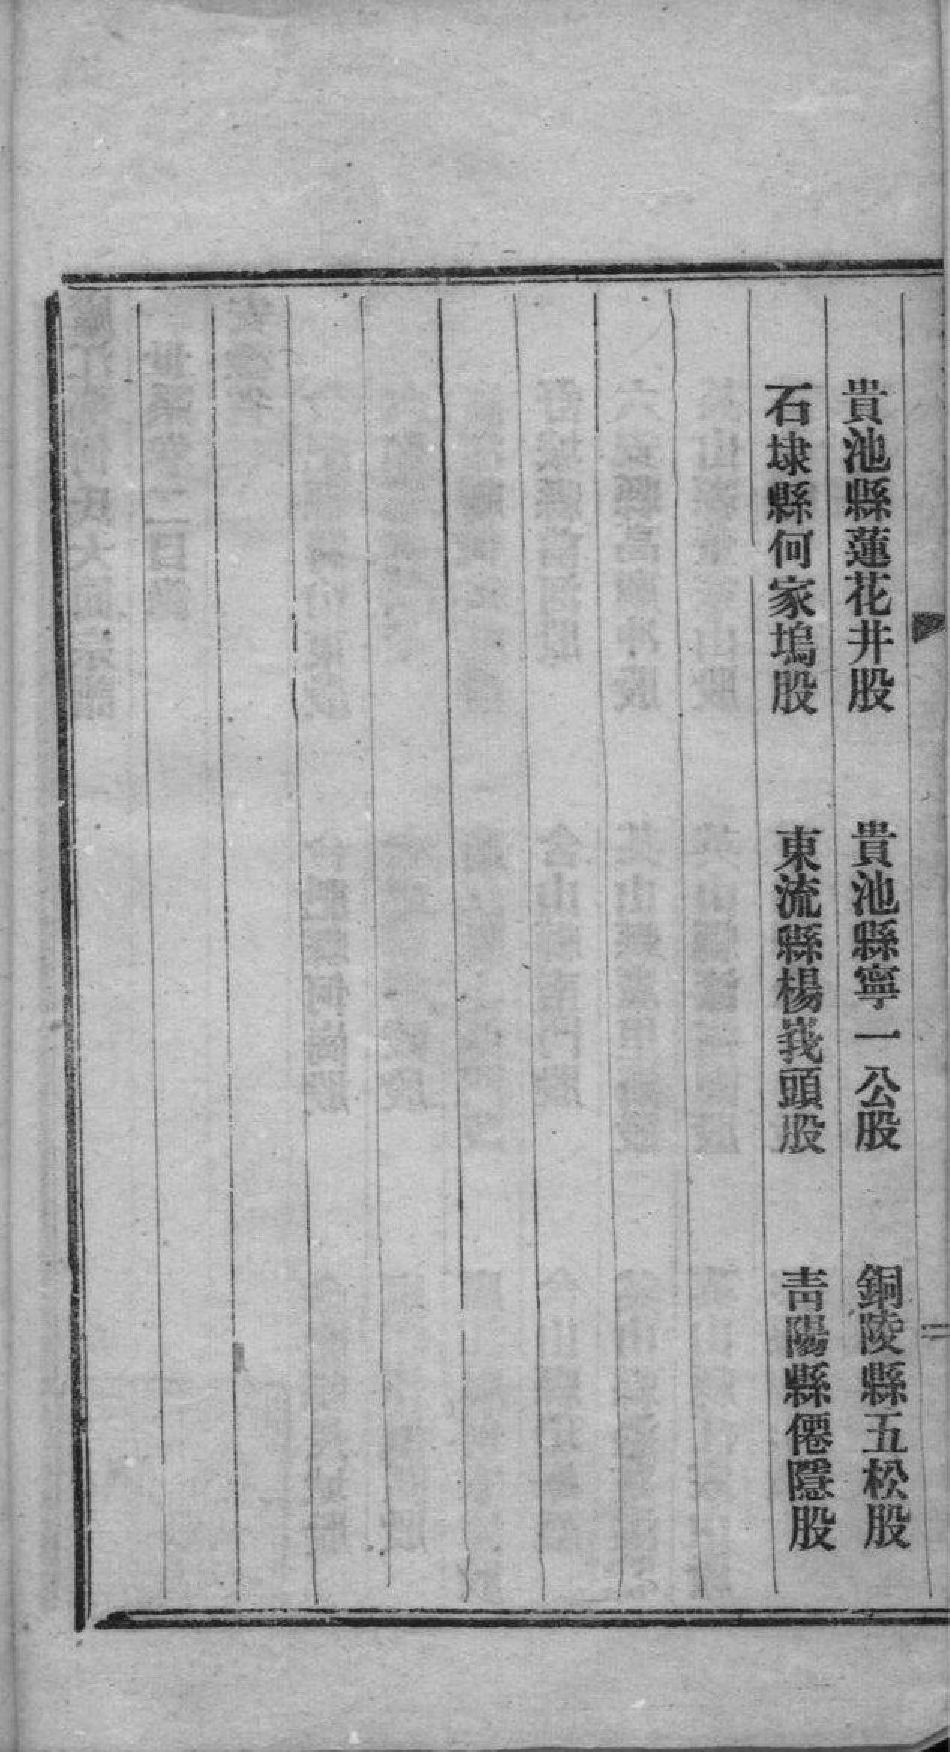 貴池縣蓮花井股　貴池縣寧一公股　銅陵縣五松股
石埭縣何家塢股　東流縣楊峩頭股　青陽縣僊隱股